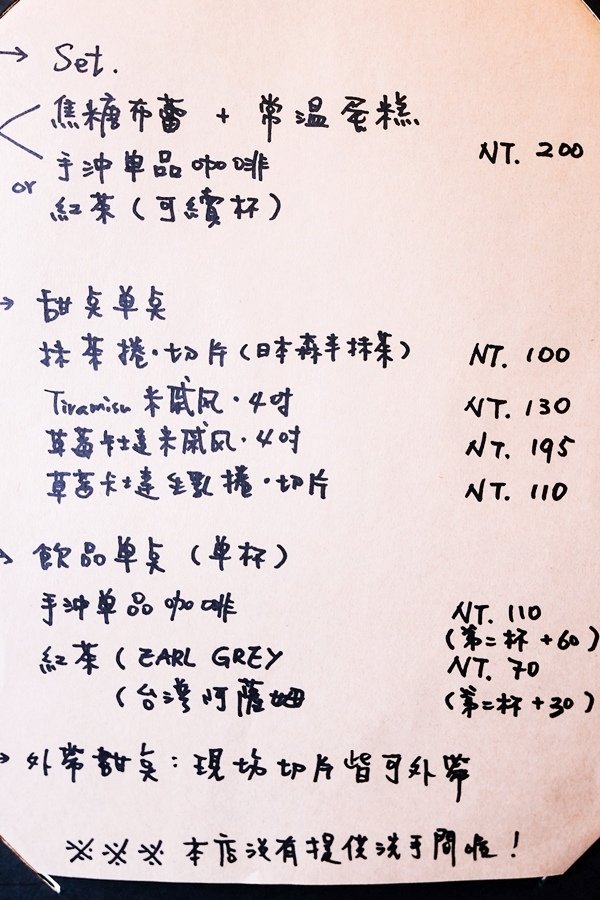 → Set.
焦糖布蕾 + 常温蛋糕
手沖单品咖啡 NT. 200
or
紅茶(可續杯)
→ 甜点单点
抹茶捲·切片(日本森半抹茶) NT. 100
Tiramisu 米戚风·4吋 NT. 130
草莓卡士達米戚风·4吋 NT. 195
草莓卡士達生乳捲·切片 NT. 110
→ 飲品单点(单杯)
手沖单品咖啡 NT. 110
(第二杯 +60)
紅茶(EARL GREY NT. 70
(台灣阿薩姆 (第二杯 +30)
→ 外帶甜点:現場切片皆可外帶
※※※ 本店没有提供洗手間啦!